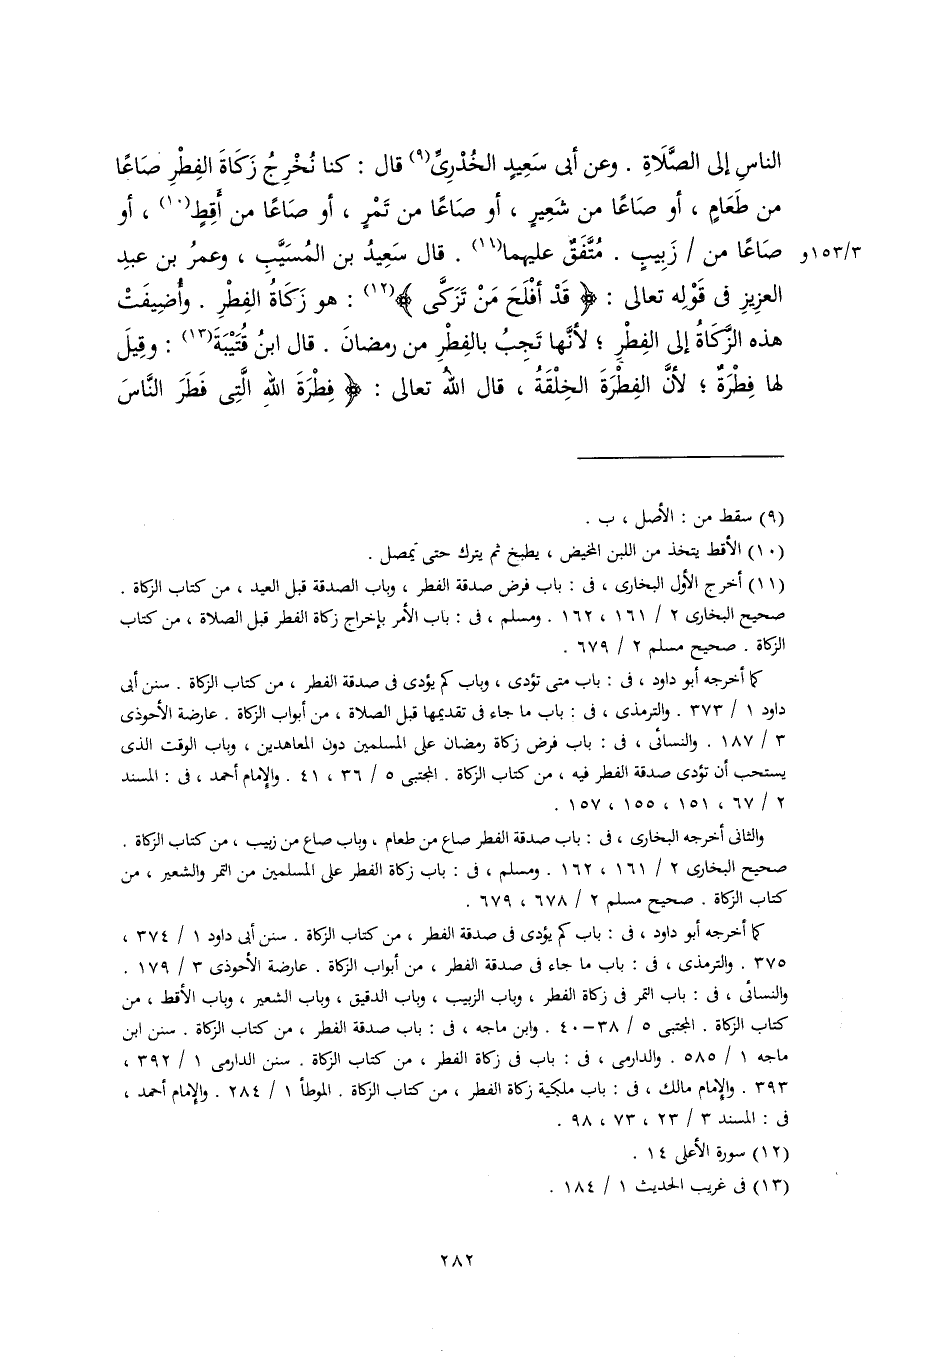 الناسِ إلى الصَّلَاةِ . وعن أبى سَعِيدٍ الخُدْرِىِّ(٩) قال : كنا نُخْرِجُ زَكَاةَ الفِطْرِ صَاعًا
من طَعَامٍ ، أو صَاعًا من شَعِيرٍ ، أو صَاعًا من تَمْرٍ ، أو صَاعًا من أَقِطٍ(١٠) ، أو
١٥٣/٣و صَاعًا من / زَبِيبٍ . مُتَّفَقٌ عليهما(١١) . قال سَعِيدُ بن المُسَيَّبِ ، وعمرُ بن عبدِ
العزيزِ فى قَوْلِه تعالى : ﴿ قَدْ أَفْلَحَ مَنْ تَزَكَّى ﴾(١٢) : هو زَكَاةُ الفِطْرِ . وأُضِيفَتْ
هذه الزَّكَاةُ إلى الفِطْرِ ؛ لأنَّها تَجِبُ بالفِطْرِ من رمضانَ . قال ابنُ قُتَيْبَةَ(١٣) : وقِيلَ
لها فِطْرَةٌ ؛ لأنَّ الفِطْرَةَ الخِلْقَةُ ، قال اللهُ تعالى : ﴿ فِطْرَةَ اللهِ الَّتِى فَطَرَ النَّاسَ
(٩) سقط من : الأصل ، ب .
(١٠) الأقط يتخذ من اللبن المخيض ، يطبخ ثم يترك حتى يمصل .
(١١) أخرج الأول البخارى ، فى : باب فرض صدقة الفطر ، وباب الصدقة قبل العيد ، من كتاب الزكاة .
صحيح البخارى ٢ / ١٦١ ، ١٦٢ . ومسلم ، فى : باب الأمر بإخراج زكاة الفطر قبل الصلاة ، من كتاب
الزكاة . صحيح مسلم ٢ / ٦٧٩ .
كما أخرجه أبو داود ، فى : باب متى تؤدى ، وباب كم يؤدى فى صدقة الفطر ، من كتاب الزكاة . سنن أبى
داود ١ / ٣٧٣ . والترمذى ، فى : باب ما جاء فى تقديمها قبل الصلاة ، من أبواب الزكاة . عارضة الأحوذى
٣ / ١٨٧ . والنسائى ، فى : باب فرض زكاة رمضان على المسلمين دون المعاهدين ، وباب الوقت الذى
يستحب أن تؤدى صدقة الفطر فيه ، من كتاب الزكاة . المجتبى ٥ / ٣٦ ، ٤١ . والإمام أحمد ، فى : المسند
٢ / ٦٧ ، ١٥١ ، ١٥٥ ، ١٥٧ .
والثانى أخرجه البخارى ، فى : باب صدقة الفطر صاع من طعام ، وباب صاع من زبيب ، من كتاب الزكاة .
صحيح البخارى ٢ / ١٦١ ، ١٦٢ . ومسلم ، فى : باب زكاة الفطر على المسلمين من التمر والشعير ، من
كتاب الزكاة . صحيح مسلم ٢ / ٦٧٨ ، ٦٧٩ .
كما أخرجه أبو داود ، فى : باب كم يؤدى فى صدقة الفطر ، من كتاب الزكاة . سنن أبى داود ١ / ٣٧٤ ،
٣٧٥ . والترمذى ، فى : باب ما جاء فى صدقة الفطر ، من أبواب الزكاة . عارضة الأحوذى ٣ / ١٧٩ .
والنسائى ، فى : باب التمر فى زكاة الفطر ، وباب الزبيب ، وباب الدقيق ، وباب الشعير ، وباب الأقط ، من
كتاب الزكاة . المجتبى ٥ / ٣٨-٤٠ . وابن ماجه ، فى : باب صدقة الفطر ، من كتاب الزكاة . سنن ابن
ماجه ١ / ٥٨٥ . والدارمى ، فى : باب فى زكاة الفطر ، من كتاب الزكاة . سنن الدارمى ١ / ٣٩٢ ،
٣٩٣ . والإمام مالك ، فى : باب ملكية زكاة الفطر ، من كتاب الزكاة . الموطأ ١ / ٢٨٤ . والإمام أحمد ،
فى : المسند ٣ / ٢٣ ، ٧٣ ، ٩٨ .
(١٢) سورة الأعلى ١٤ .
(١٣) فى غريب الحديث ١ / ١٨٤ .
٢٨٢